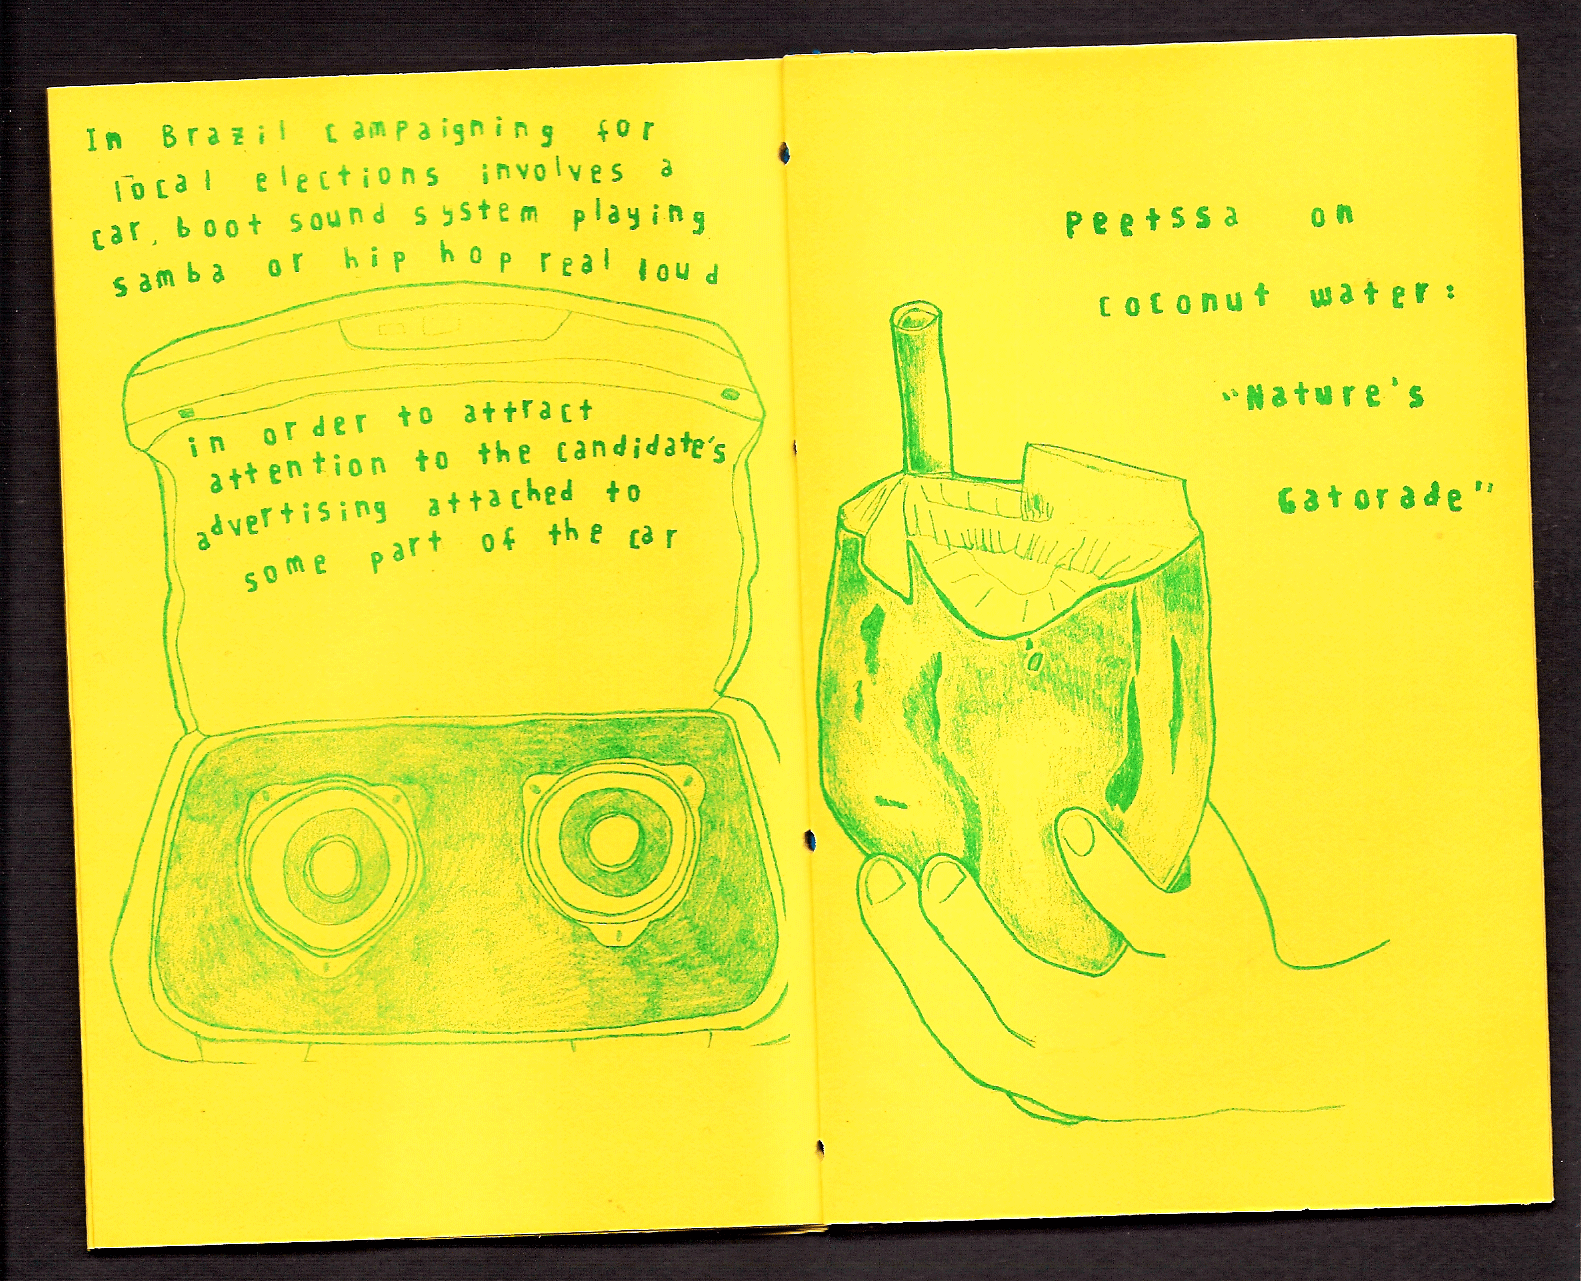 In Brazil campaigning for
local elections involves a
car, boot sound system playing
samba or hip hop real loud
in order to attract
attention to the candidate's
advertising attached to
some part of the car
Peetssa on
coconut water:
"Nature's
Gatorade"